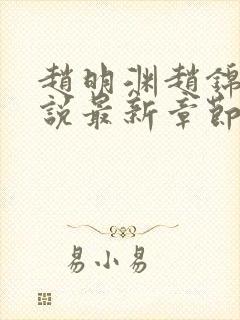 趙明渊趙錦
說最新章節
易小易